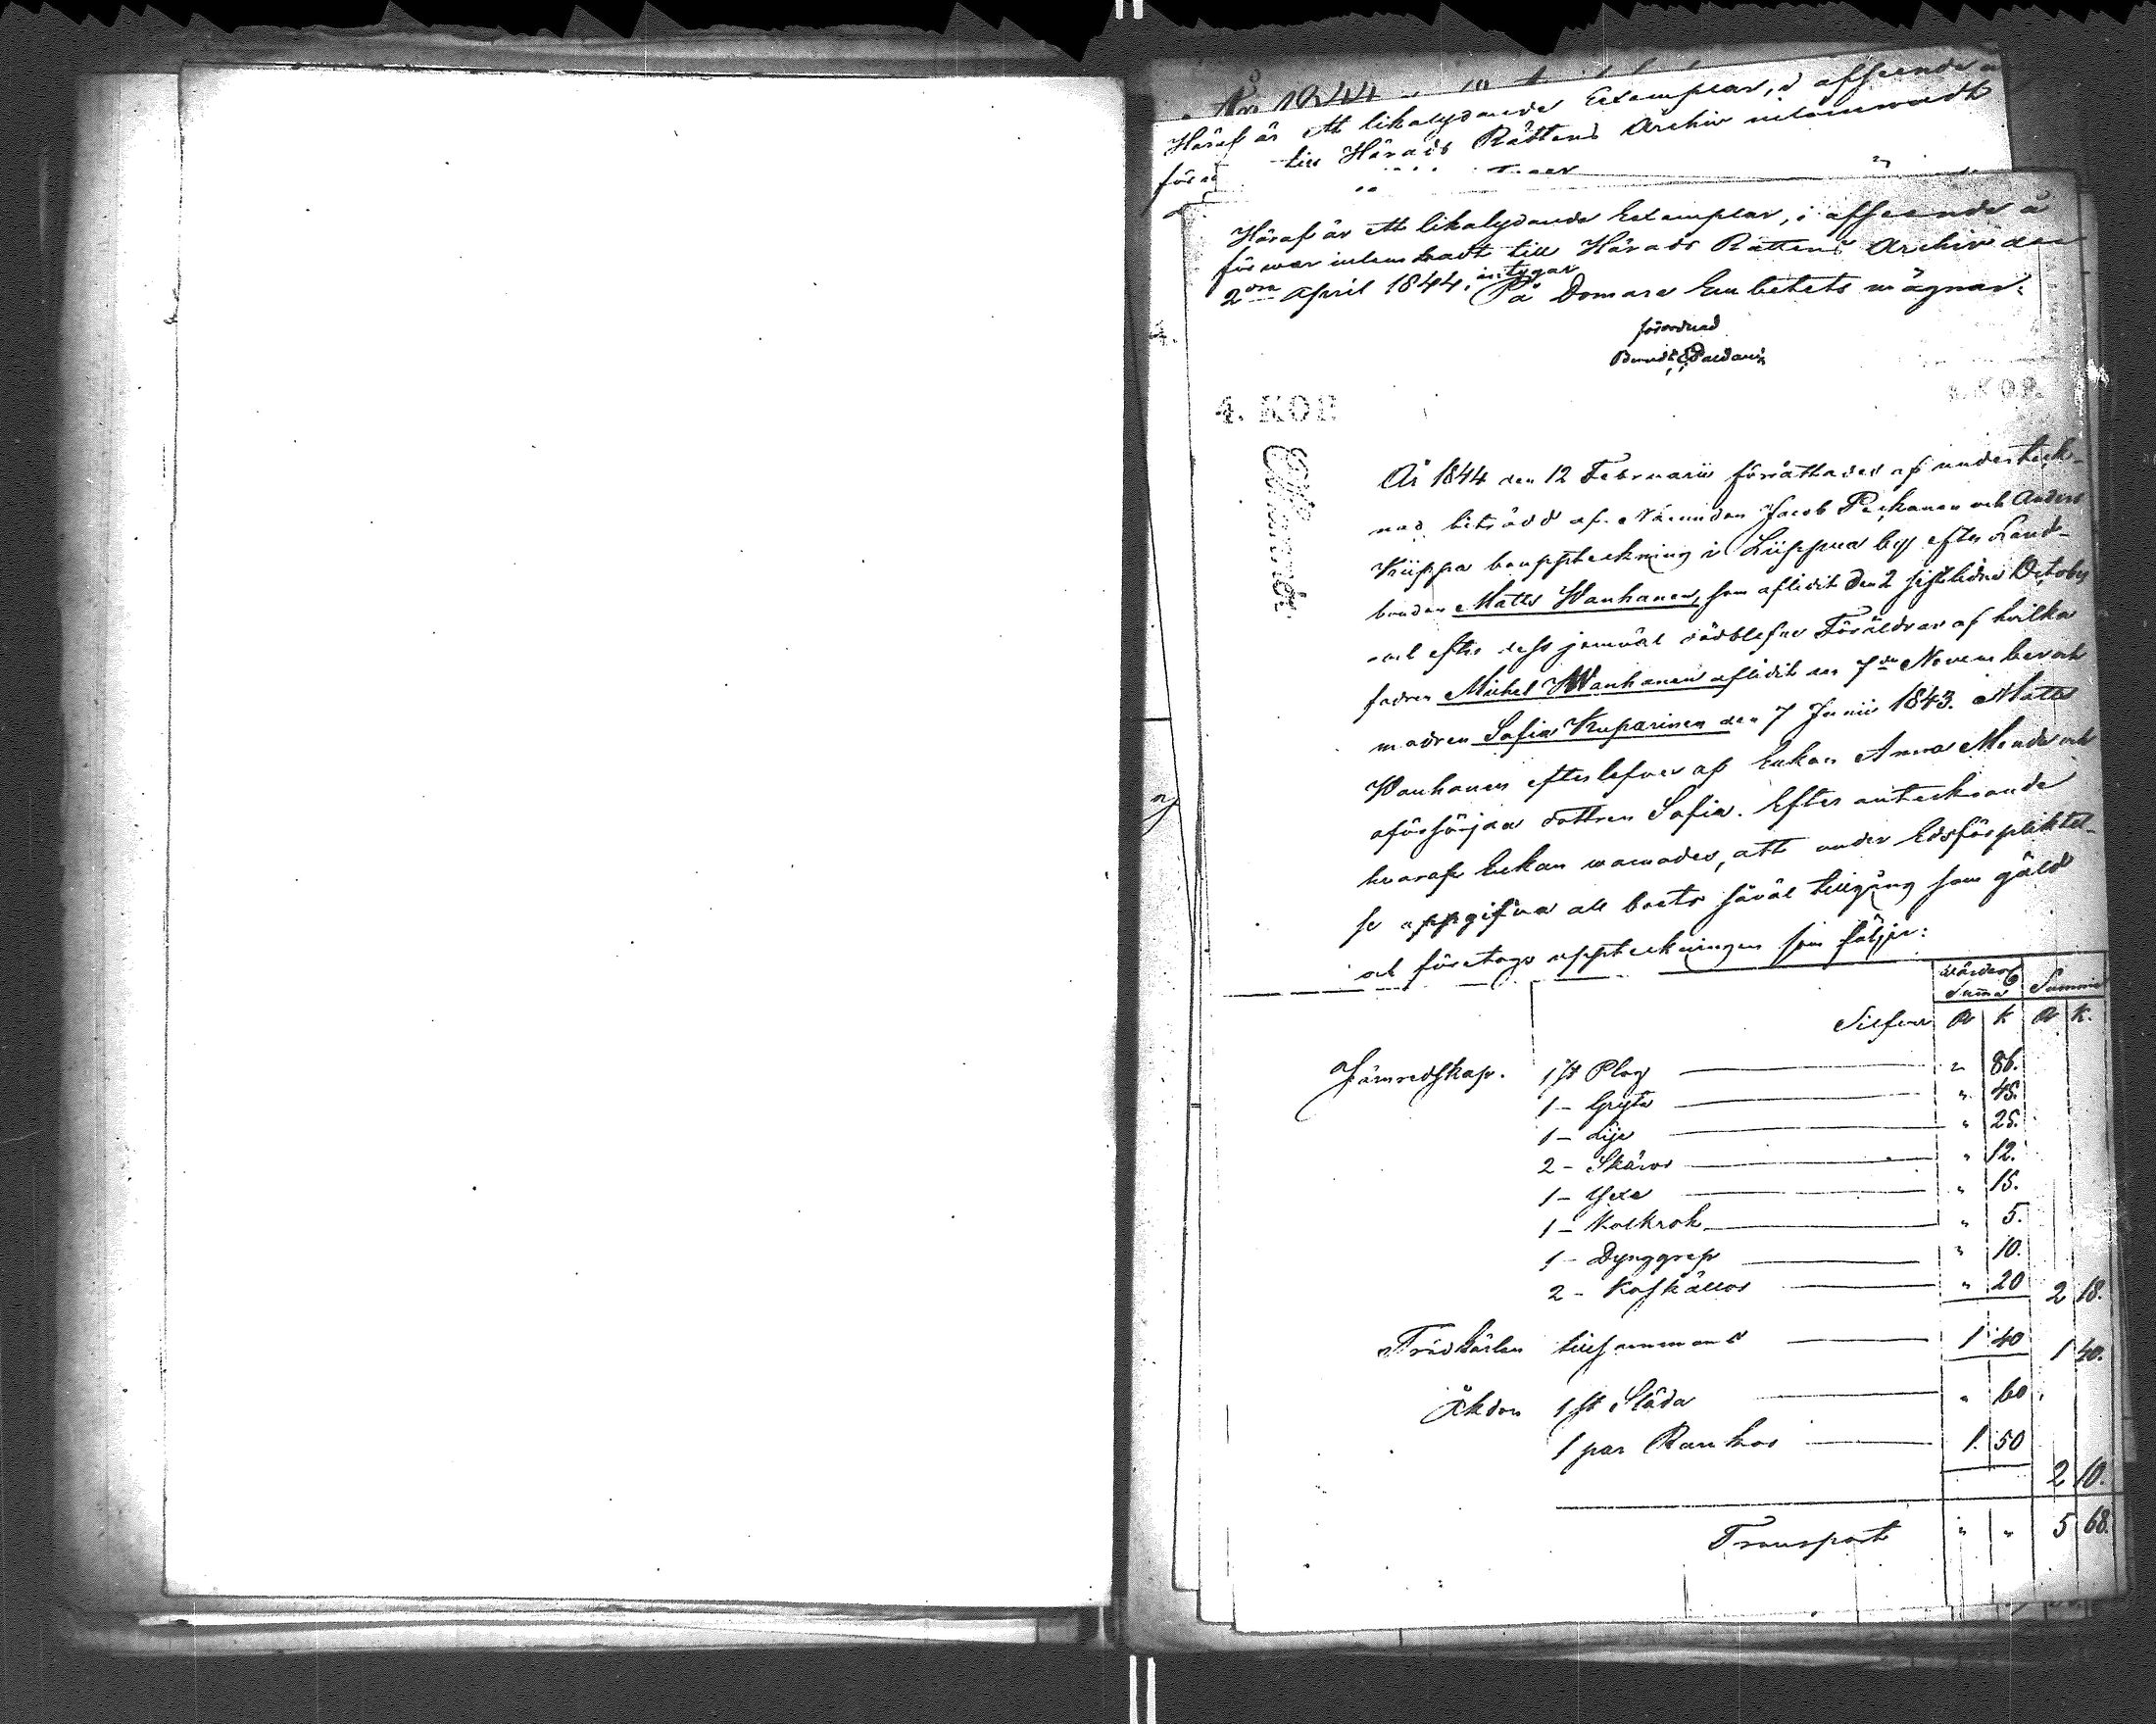 Häraf är ett likalydande Exemplar, i afseende å
för till Härads Rättens Archiv inlemnadt
Häraf är ett likalydande Exemplar, i afseende å
förwar inlemnadt till Härads Rättens Archiv den
2dra April 1844, intygar
På Domare Embetets wägnar:
förordnad
4. KOP.
4. KOP.
År 1844 den 12 Februarii förrättades af underteck-
nad biträdd af Nämndem Jacob Peckanen och Anders
Kiippa bouppteckning i Liippua by efter Land-
bonden Matts Wanhanen, som aflidit den 2 sistledne October
och efter dess jemväl dödblefne Föräldrar af hvilka
fadren Michel Wanhanen aflidit den 7de November och
modren Sofia Kuparinen den 7 Junii 1843. Matts
Wanhanen efterlefves af Enkan Anna Monde och
oförsörjda dottren Sofia. Efter antecknande
hvaraf Enkan warnades, att under Edsförpliktel-
se uppgifva all boets såväl tillgång som gäld
och företogs uppteckningen som följer:
Värderg Summa Summa
Silfver R K R K.
Järnredskap. 1 st Plog " 86.
1 - Gryta " 45.
1 - Lije " 25.
2 - Skäror " 12.
1 - Yxa " 15.
1 - Kolkrok " 5.
1 - Dynggrep " 10.
2 - Koskällor " 20 2 18.
Trädkärlen tillsammans 1 40 1 40.
Åkdon 1 st Släda " 60
1 par Rankor 1. 50
2 10.
Transport " " 5 68.